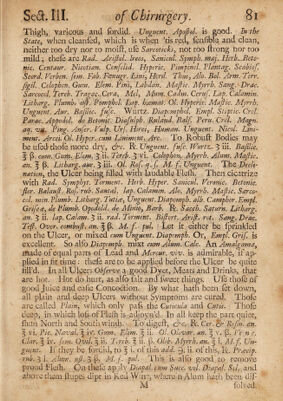 Sect. III. of Chirurgery. 81
Thigh, varicous and sordid. Unguent. Apostol. is good. In the
State, when cleansed, which is when 'tis red, sensible and clean,
neither too dry nor to moist, use Sarcoticks, not too strong nor too
mild; these are Rad. Aristol. Ireos, Sanicul. Symph. maj. Herb. Beto-
nic. Centaur. Nicotian. Consolid. Hyperic. Pimpinel. Plantag. Scabios.
Scord. Verben. sem. Fab. Fœnugr. Lini, Hord. Thus, Alo. Bol. Arm. Terr.
sigil. Coloph. Gum. Elem. Pini, Labdan. Mastic. Myrrh. Sang. Drac.
Sarcocol. Tereb. Tragac. Cera, Mel, Mum. Cadm. Ceruss. Lap. Calamin.
Litharg. Plumb. ust. Pomphol. Lap. hæmat. Ol. Hyperic. Mastic. Myrrh.
Unguent. Aur. Basilic. fusc. Wurtz. Diapomphol. Empl. Stiptic. Crol.
Parac. Oppodel. de Betonic. Diasulph. Ruland. Bals. Peru. Crid. Magn.
aq. viv. Ping. Anser. Vulp. Ursi, Hirci, Human. Unguent. Nicot. Lini-
ment. Arcæi Ol. Hyper. cum Liniment. Arc. To Robust Bodies may
be used those more dry, &c. ℞ Unguent. fusc. Wurtz. ℥ iii. Basilic.
℥ ß. cum. Gum. Elem. ℥ ii. Tereb. ℥ vi. Colophon, Myrrh. Alum, Mastic.
an. ℥ ß. Litharg. aur. ℥ iii. Ol. Ros. q. s. M. f. Unguent. The Decli-
nation, the Ulcer being filled with laudable Flesh. Then cicatrize
with Rad. Symphyt. Torment. Herb. Hyper. Sanicul. Veronic. Betonic.
flor. Balaust. Ros. rub. Santal. lap. Calamin. Alo, Myrrh. Mastic. Sarco-
col. min. Plumb. Litharg. Tutia, Unguent. Diapomph. alb. Camphor. Empl.
Grisè a, de Plumb. Opodeld. de Minio, Barb. ℞ Sacch. Saturn. Litharg.
an. ℥ ii. lap. Calam. ℥ ii. rad. Torment. Bistort. Arist. rot. Sang. Drac.
Test. Ovor. combust. an. ʒ ß. M. f. pul. Let it either be sprinkled
on the Ulcer, or mixed cum Unguent. Diapomph. Or, Empl. Gris. is
excellent. So also Diapomph. mixt cum Alum. Calc. An Amalgama,
made of equal parts of Lead and Mercur. viv. is admirable, if ap-
plied in fit time: these are to be applied before the Ulcer be quite
fill'd. In all Ulcers Observe a good Dyet, Meats and Drinks, that
are hot or hot do hurt, as also salt and sweet things. Use those of
good Juice and easie Concoction. By what hath been set down,
all plain and deep Ulcers without Symptoms are cured. Those
are called Plain, which only pass the Cuticula and Cutis. Those
deep, in which loss of Flesh is adjoyn'd. In all keep the part quiet,
shun North and South winds. To digest,
guent. If they be sordid, to ℥ i. of this add. ʒ ii. of this, ℞ Præcip.
rub. ʒ i. Alum. ust. ʒ ß. M. f. pul. This is also good to remove
proud Flesh. On these apply Diapal. cum Succ. vel Diapal. Sol. and
above them stupes dipt in Red Wine, wherein Alum hath been dis-
M solved.